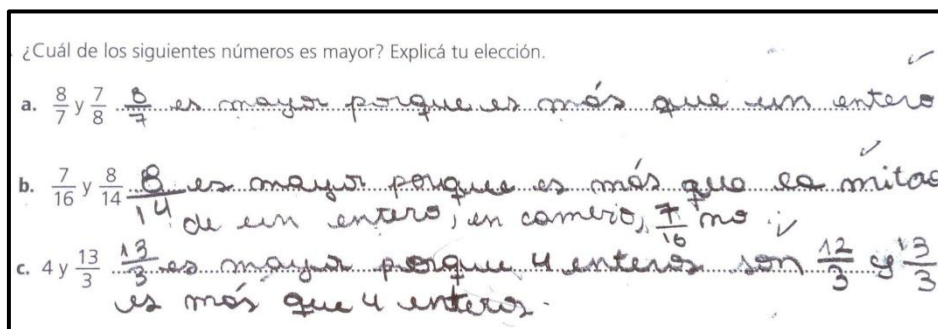 ¿Cuál de los siguientes números es mayor? Explicá tu elección.
a. 8/7 y 7/8 8/7 es mayor porque es más que un entero
b. 7/16 y 8/14 8/14 es mayor porque es más que la mitad
de un entero, en cambio, 7/16 no
c. 4 y 13/3 13/3 es mayor porque 4 enteros son 12/3 y 13/3
es más que 4 enteros.